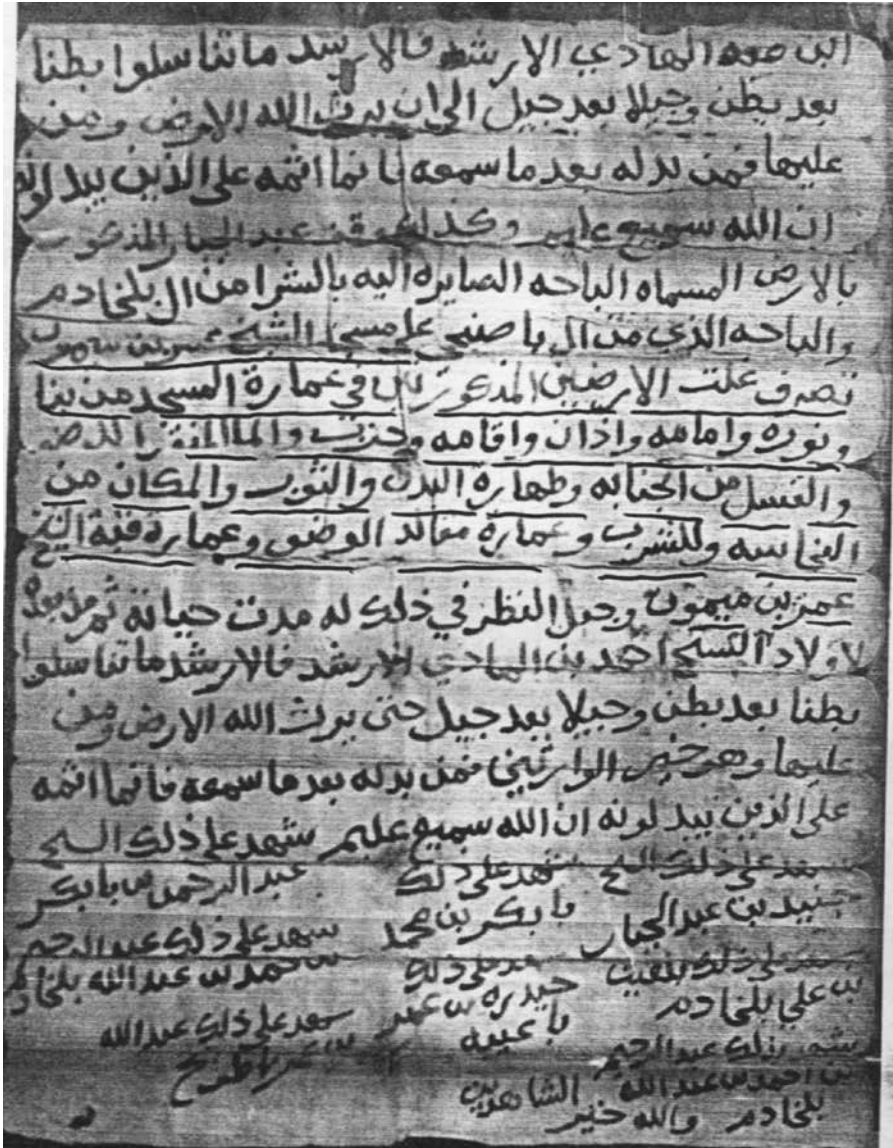 ابن محمد الهادي الارشد فالارشد ما تناسلوا بطنا
بعد بطن وجيلا بعد جيل الى ان يرث الله الارض ومن
عليها فمن بدله بعد ما سمعه فانما اثمه على الذين يبدلونه
ان الله سميع عليم وكذلك وقف عبد الجبار المذكور
بالارض المسماه الباحه الصايره اليه بالشرا من ال بلخادم
والباحه الذي من ال با صنعي على مسجد الشيخ عمر بن ميمون
تصرف غلت الارضين المذكورتين في عمارة المسجد من بنا
ونوره وامامه واذان واقامه وحزب والما
والغسل من الجنابه وطهارة البدن والثوب والمكان من
النجاسه وللشرب وعمارة مقالد الوضو وعمارة قبة الشيخ
عمر بن ميمون وجعل النظر في ذلك له مدت حياتة ثم من بعده
لاولاد الشيخ احمد بن الهادي الارشد فالارشد ما تناسلوا
بطنا بعد بطن وجيلا بعد جيل حتى يرث الله الارض ومن
عليها وهو خير الوارثين فمن بدله بعد ما سمعه فانما اثمه
على الذين يبدلونه ان الله سميع عليم شهد على ذلك الشيخ
عبد الرحمن بن بابكر
شهد على ذلك الشيخ
جنيد بن عبد الجبار
شهد على ذلك
با بكر بن محمد
شهد على ذلك عبد الرحيم
بن محمد بن عبد الله بلخادم
شهد على ذلك
بن علي بلخادم
شهد على ذلك
حيدره بن عمر
با
شهد على ذلك عبد الله
بن عمر
شهد بذلك عبد الرحيم
بن احمد بن عبد الله
بلخادم والله خير
الشاهدين